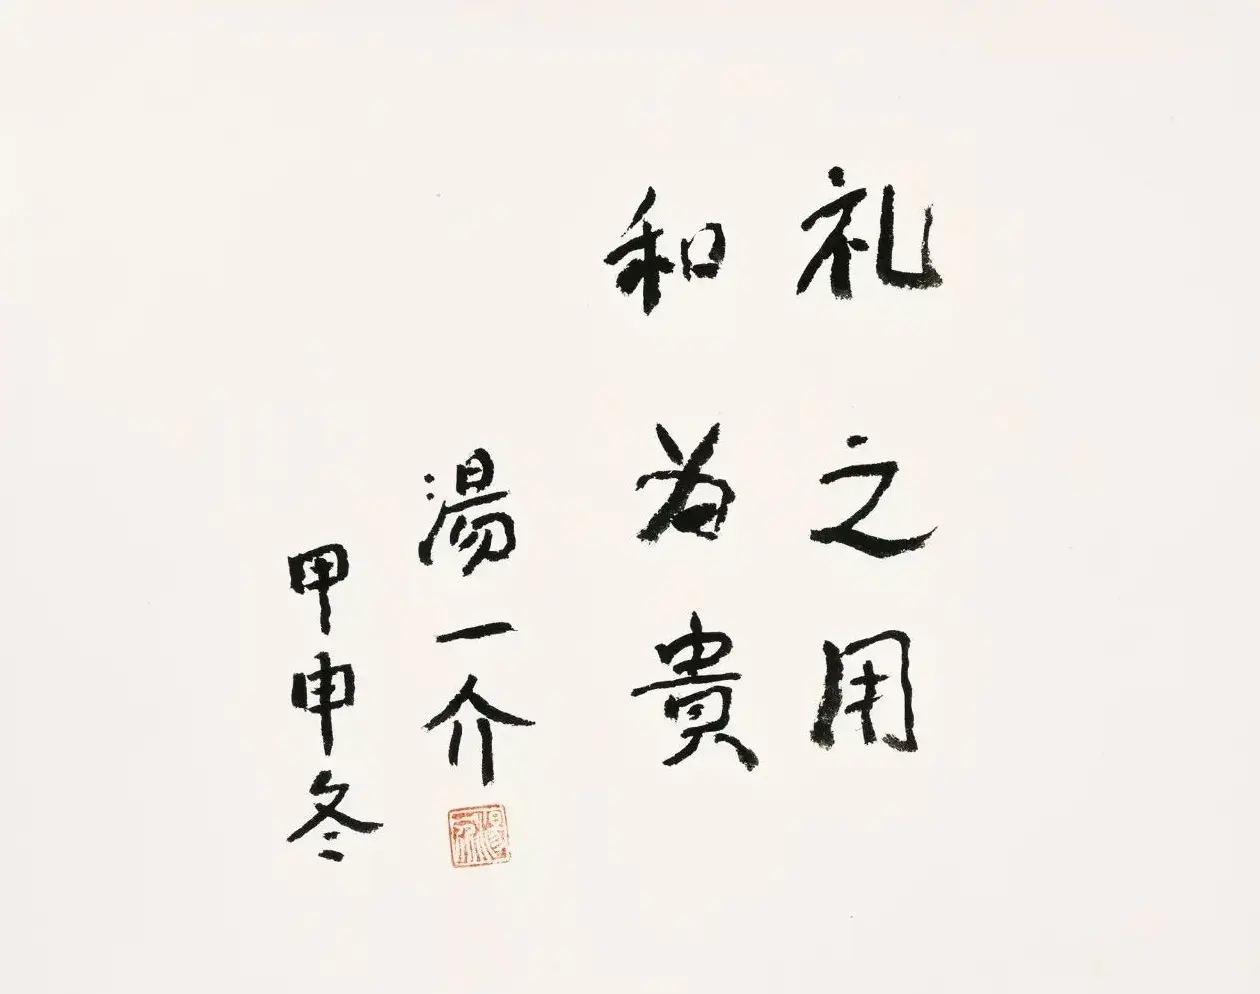 礼之用
和为貴
湯一介
甲申冬
湯一介